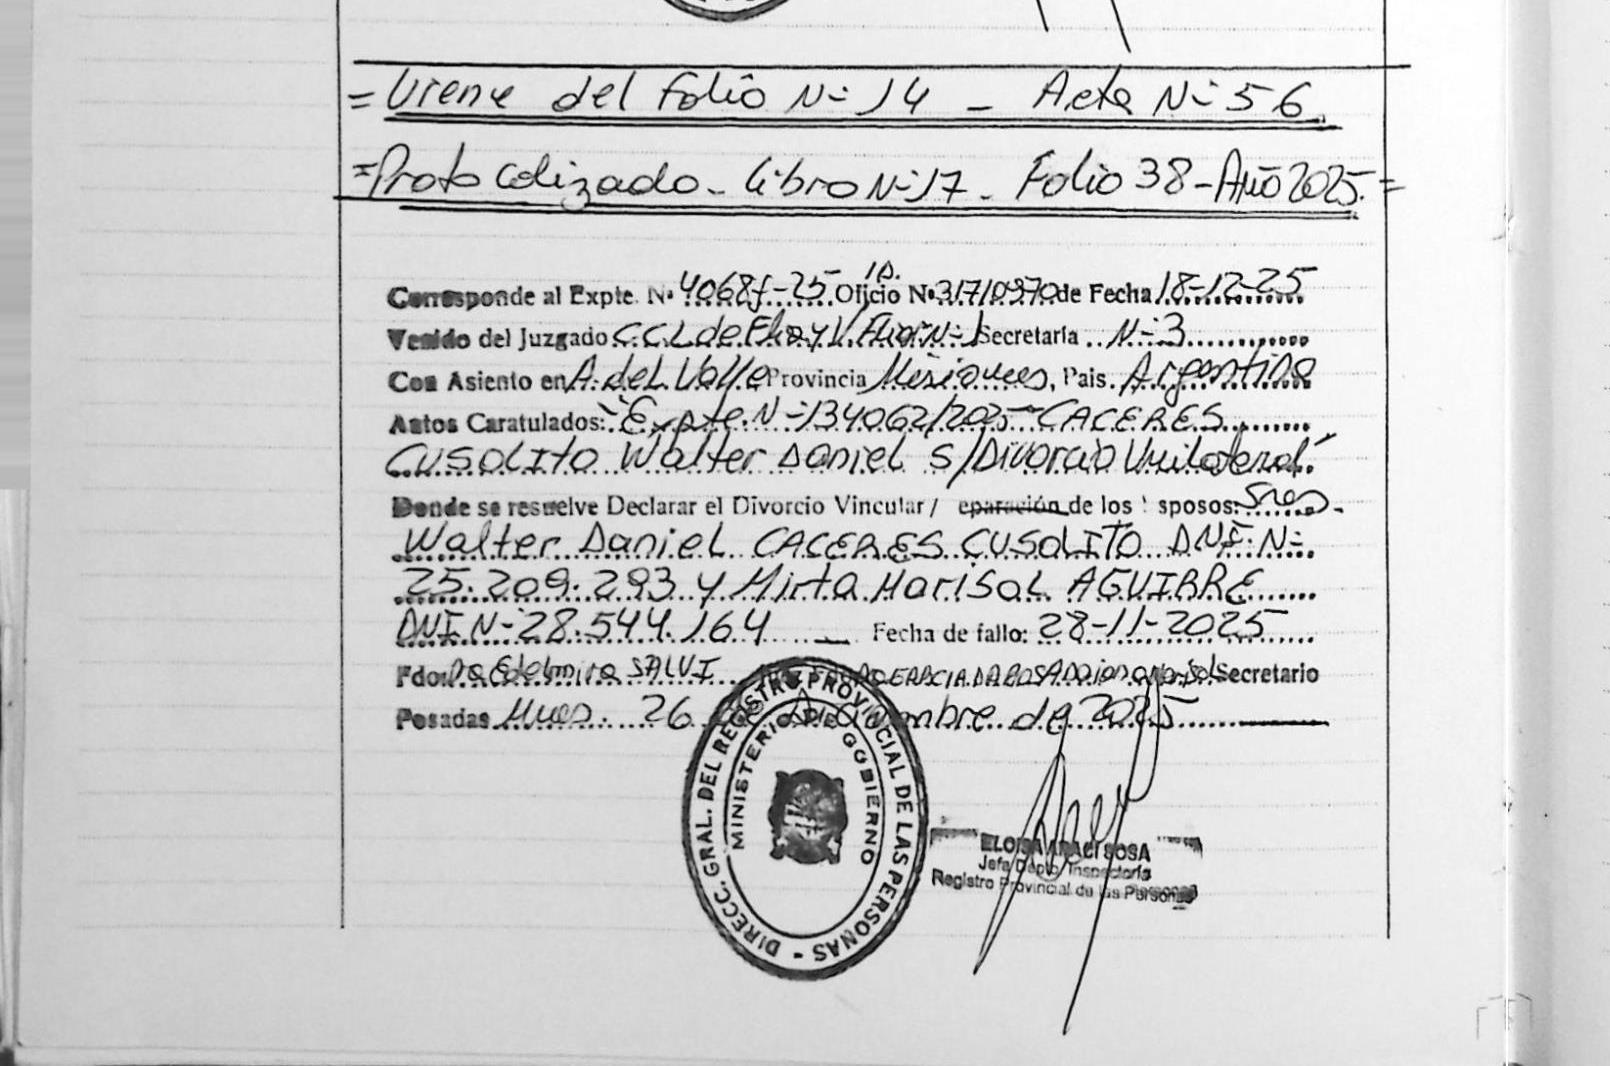 = Viene del folio N- 14 - Acta N- 56.
= Protocolizado - Libro N-17 - Folio 38 - Año 2025. =
Corresponde al Expte. N• 4068f-25 Oficio N• de Fecha 18-12-25
Venido del Juzgado C.C.L de Flia y V. Fliar N-1 Secretaría N-3
Con Asiento en A. del Valle Provincia Misiones, Pais. Argentina
Autos Caratulados: "Expte. N-134062/2025 CACERES
CUSOLITO Walter Daniel S/Divorcio Unilateral."
Donde se resuelve Declarar el Divorcio Vincular/ eparación de los sposos: Sres.
Walter Daniel CACERES CUSOLITO DNI. N-
25.209.293 y Mirta Marisol AGUIRRE
DNI N-28.544.164 Fecha de fallo: 28-11-2025
Fdo: Dra Edelmira SALVI Secretario
Posadas Mnes. 26 de Diciembre de 2025
DIRECC. GRAL. DEL REGISTRO PROVINCIAL DE LAS PERSONAS -
MINISTERIO DE GOBIERNO
ELOISA ARACI SOSA
Jefa Depto. Inspectoría
Registro Provincial de las Personas